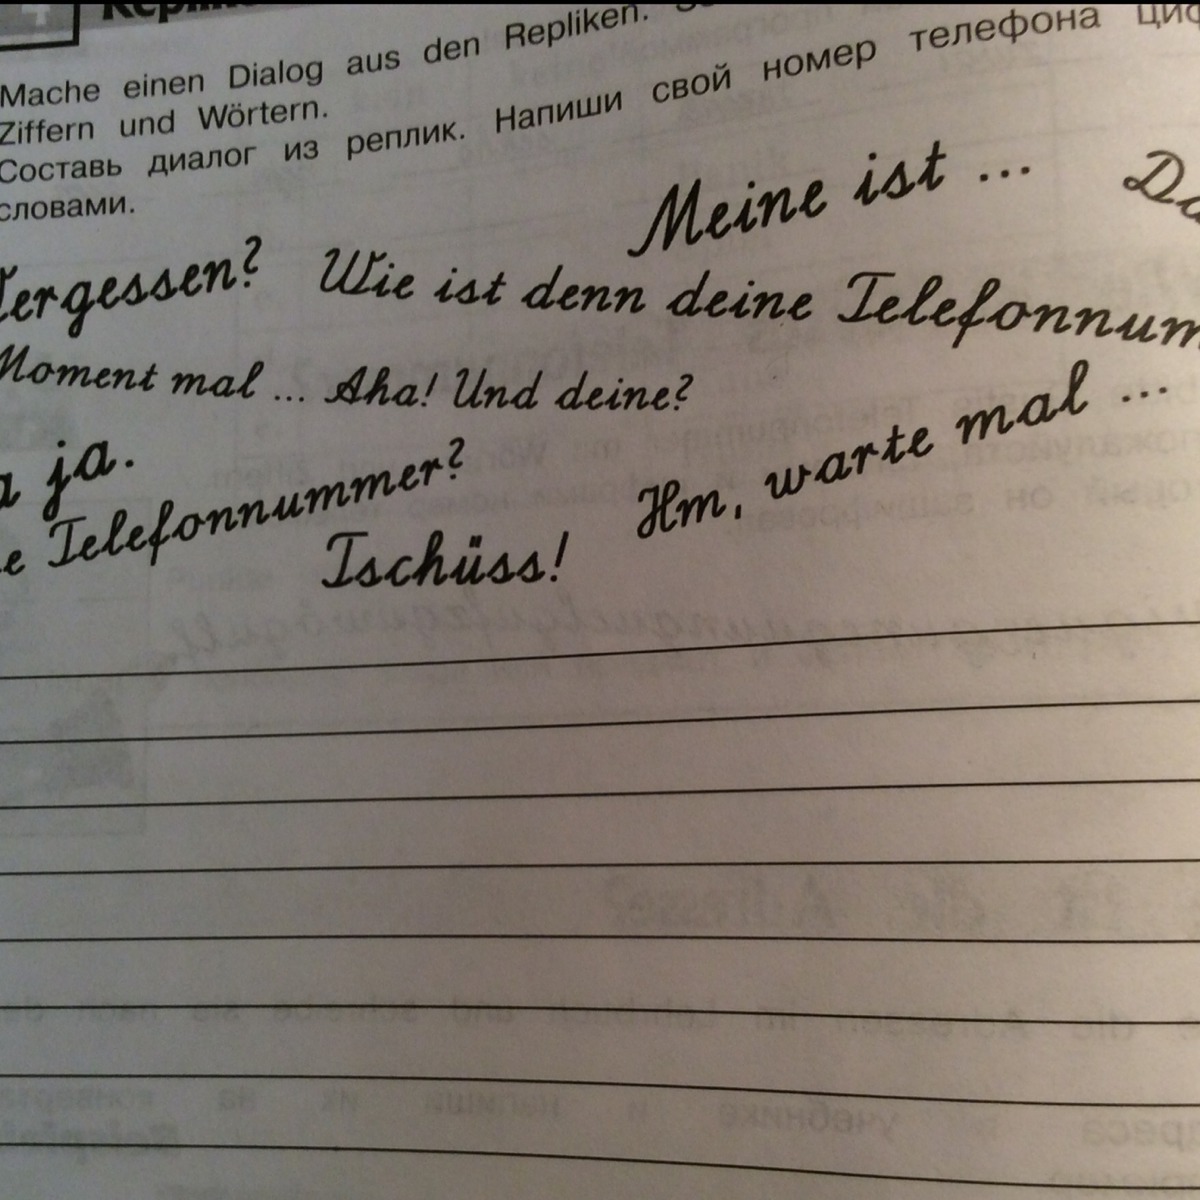 Mache einen Dialog aus den Repliken.
Ziffern und Wörtern.
Составь диалог из реплик. Напиши свой номер телефона
словами.
Meine ist ...
Vergessen? Wie ist denn deine Telefonnum
Moment mal ... Aha! Und deine?
ja.
Hm, warte mal ...
e Telefonnummer?
Tschüss!